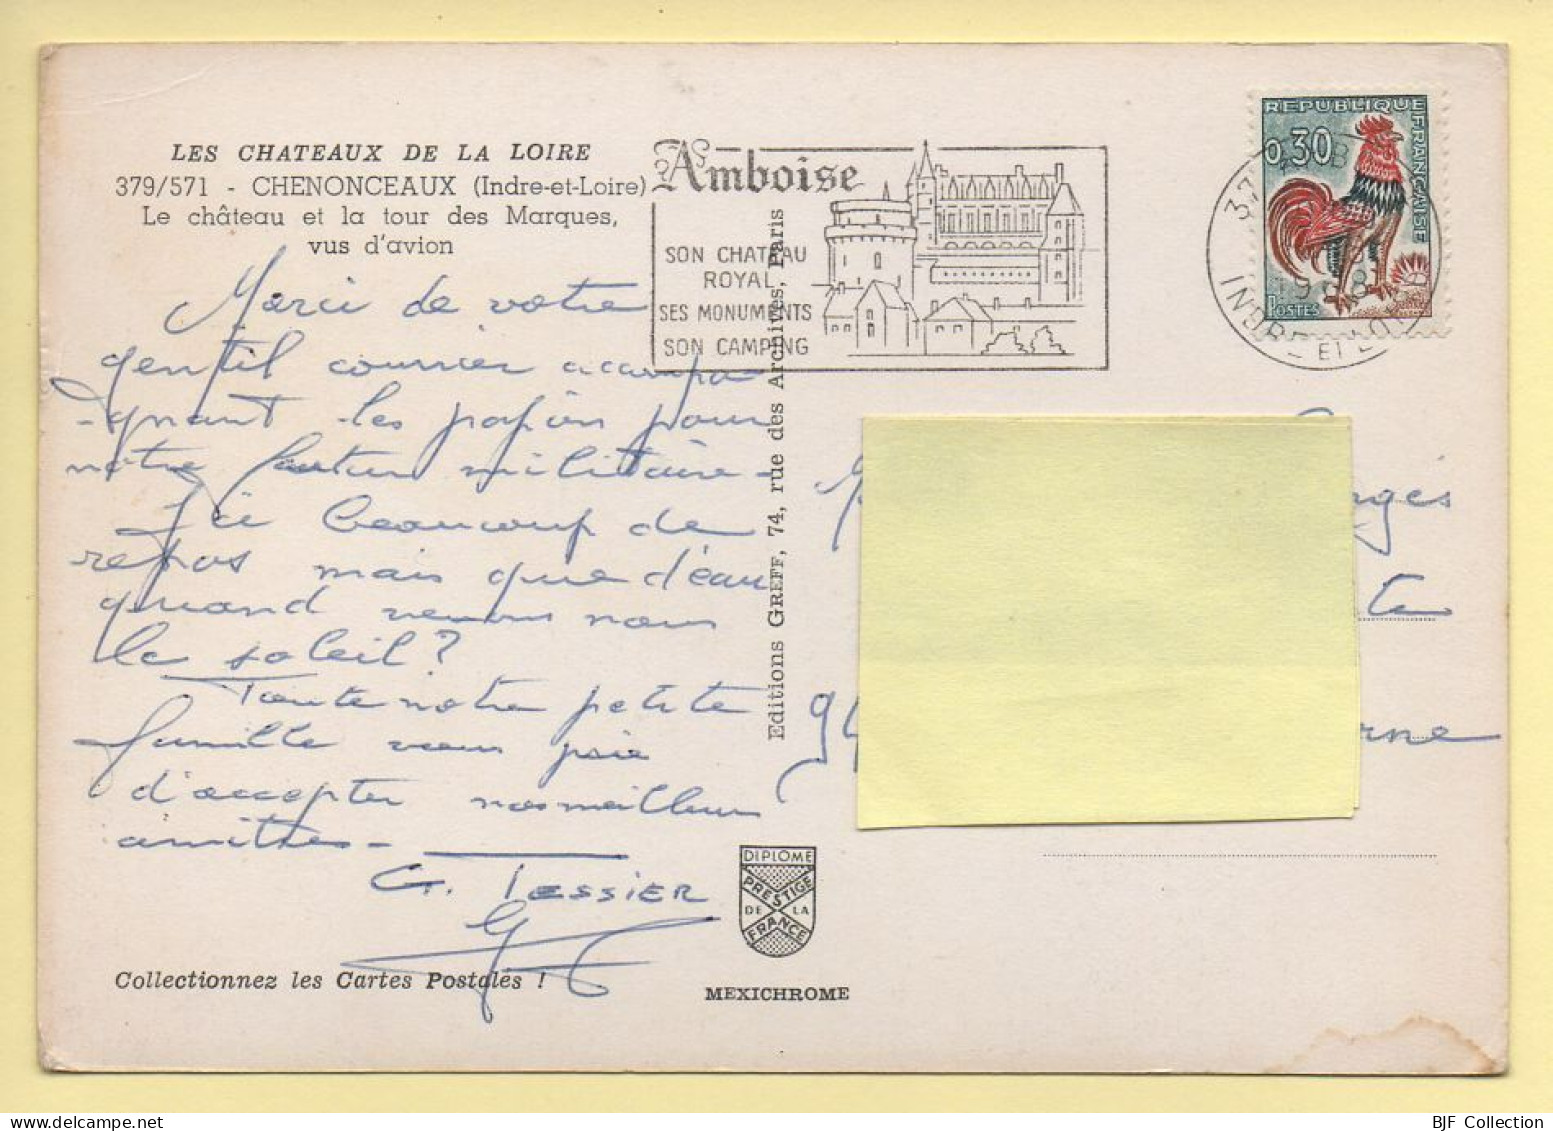 LES CHATEAUX DE LA LOIRE
379/571 - CHENONCEAUX (Indre-et-Loire)
Le château et la tour des Marques,
vus d'avion
Merci de votre
gentil courrier accompa
-gnant les papiers pour
notre futur militaire -
J'ai beaucoup de
repos mais que d'eau
quand verrons nous
le soleil ?
Toute notre petite
famille vous prie
d'accepter nos meilleures
amitiés -
G. TESSIER
Collectionnez les Cartes Postales !
Editions GREFF, 74, rue des Archives, Paris
DIPLOME
PRESTIGE
DE LA
FRANCE
MEXICHROME
Amboise
SON CHATEAU
ROYAL
SES MONUMENTS
SON CAMPING
REPUBLIQUE FRANÇAISE
0,30
POSTES
37
INDRE-ET-L
rges
te
94
rne
BJF Collection